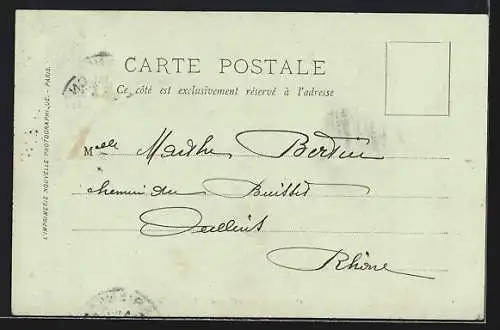 CARTE POSTALE
Ce côté est exclusivement réservé à l'adresse
Melle Marthe Bertin
chemin du Buisset
Oullins
Rhône
L'IMPRIMERIE NOUVELLE PHOTOGRAPHIQUE. - PARIS.